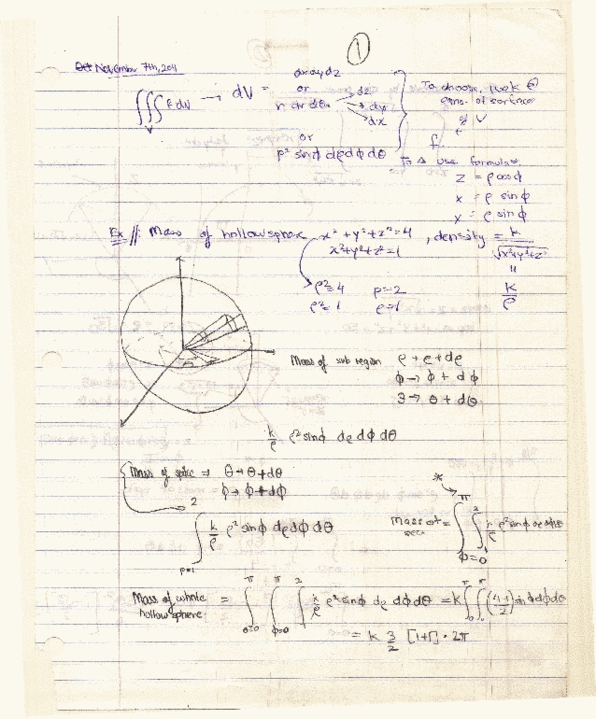 ①
November 7th, 2011
∭_V f dV → dV = dx dy dz
or
r dr dθ dz
dy
dx
or
ρ² sinφ dρ dφ dθ
To choose, look @
eqns. of surface
of V
f
To Δ use formulas
z = ρ cosφ
x = ρ sinφ
y = ρ sinφ
Ex // Mass of hollow sphere x² + y² + z² = 4 , density = k/√(x²+y²+z²)
x²+y²+z²=1
"
ρ²=4 ρ=2 k/ρ
ρ²=1 ρ=1
Mass of sub region ρ → ρ + dρ
φ → φ + dφ
θ → θ + dθ
k/ρ ρ² sinφ dρ dφ dθ
Mass of spike → θ → θ+dθ
φ → φ+dφ
∫_{ρ=1}^{2} k/ρ ρ² sinφ dρ dφ dθ
*
Mass of = ∫_{φ=0}^{π} ∫^{2} k/ρ ρ² sinφ dρ dφ dθ
Mass of whole hollow sphere = ∫_{θ=0}^{π} ∫_{φ=0}^{π} ∫^{2} k/ρ ρ² sinφ dρ dφ dθ = k ∫_0^{π} ∫_0^{π} (4-1/2) sinφ dφ dθ
= k 3/2 [1+1] · 2π